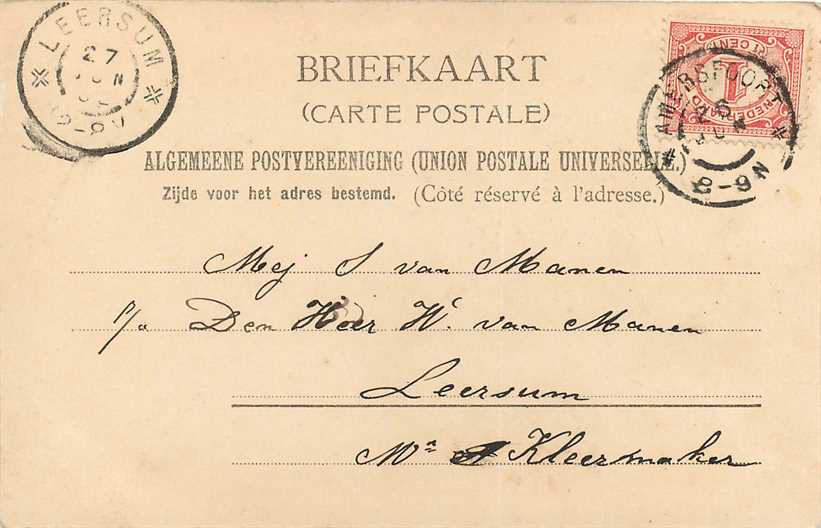 LEERSUM
27
JUN
8-9V
BRIEFKAART
(CARTE POSTALE)
ALGEMEENE POSTVEREENIGING (UNION POSTALE UNIVERSELLE.)
Zijde voor het adres bestemd. (Côté réservé à l'adresse.)
1 CENT
NEDERLAND
AMERSFOORT
26
JUN
8-9N
Mej S van Manen
p/a Den Heer W. van Manen
Leersum
Mr Kleermaker